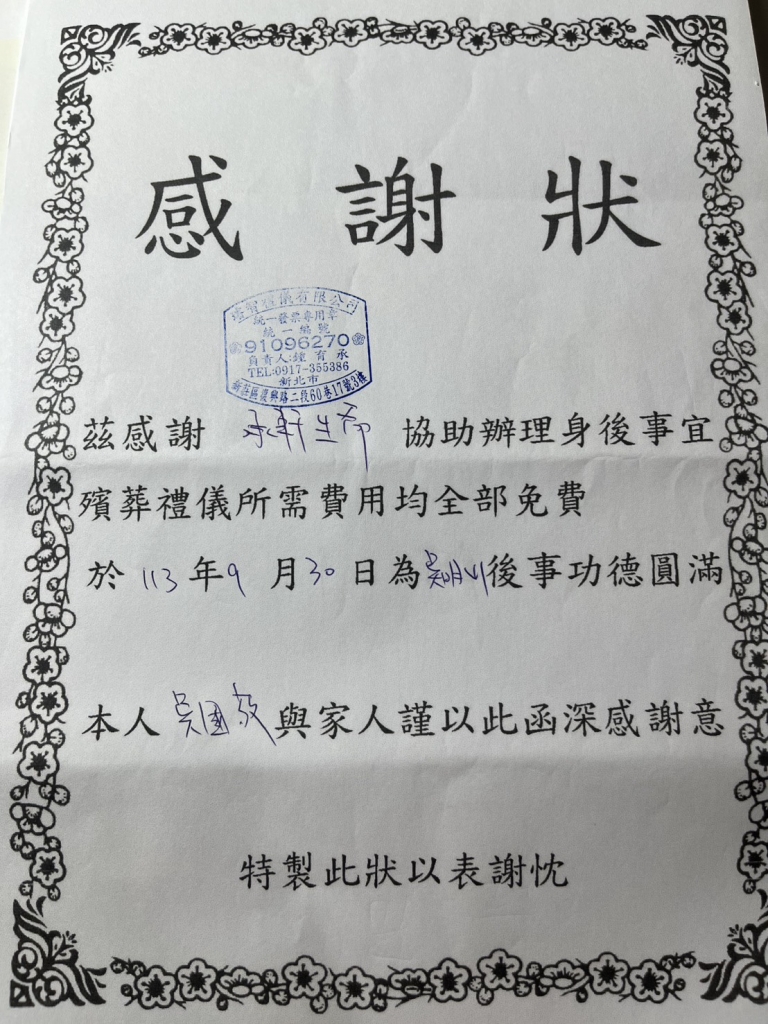 感謝狀
禮儀有限公司
統一發票專用章
統一編號
91096270
負責人:鐘育承
TEL:0917-355386
新北市
新莊區復興路二段60巷17號3樓
茲感謝 承軒生命 協助辦理身後事宜
殯葬禮儀所需費用均全部免費
於 113 年 9 月 30 日為 後事功德圓滿
本人 吳國 與家人謹以此函深感謝意
特製此狀以表謝忱